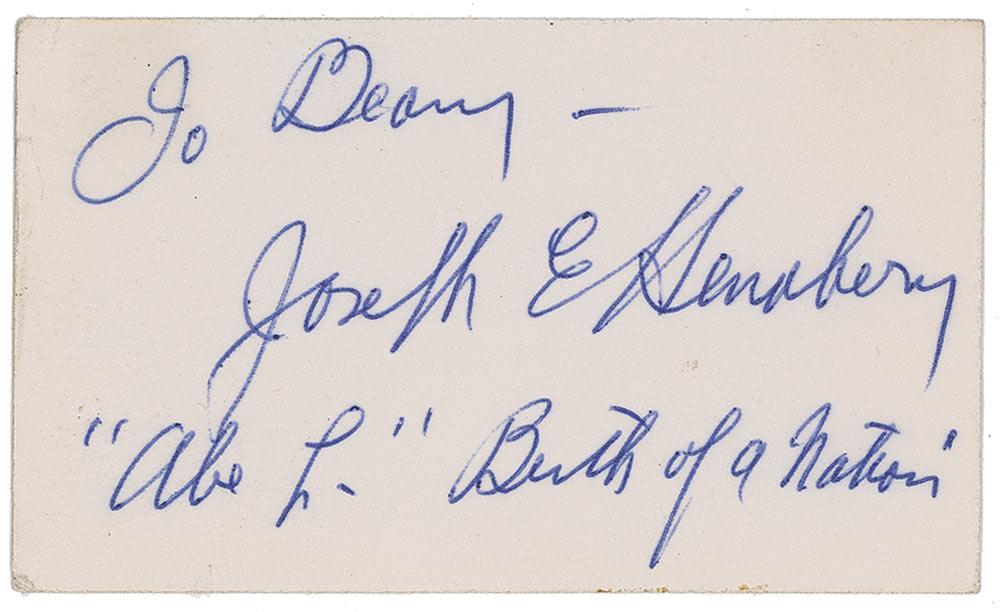 To Deany —
Joseph E Henabery
"Abe L." Birth of a Nation'